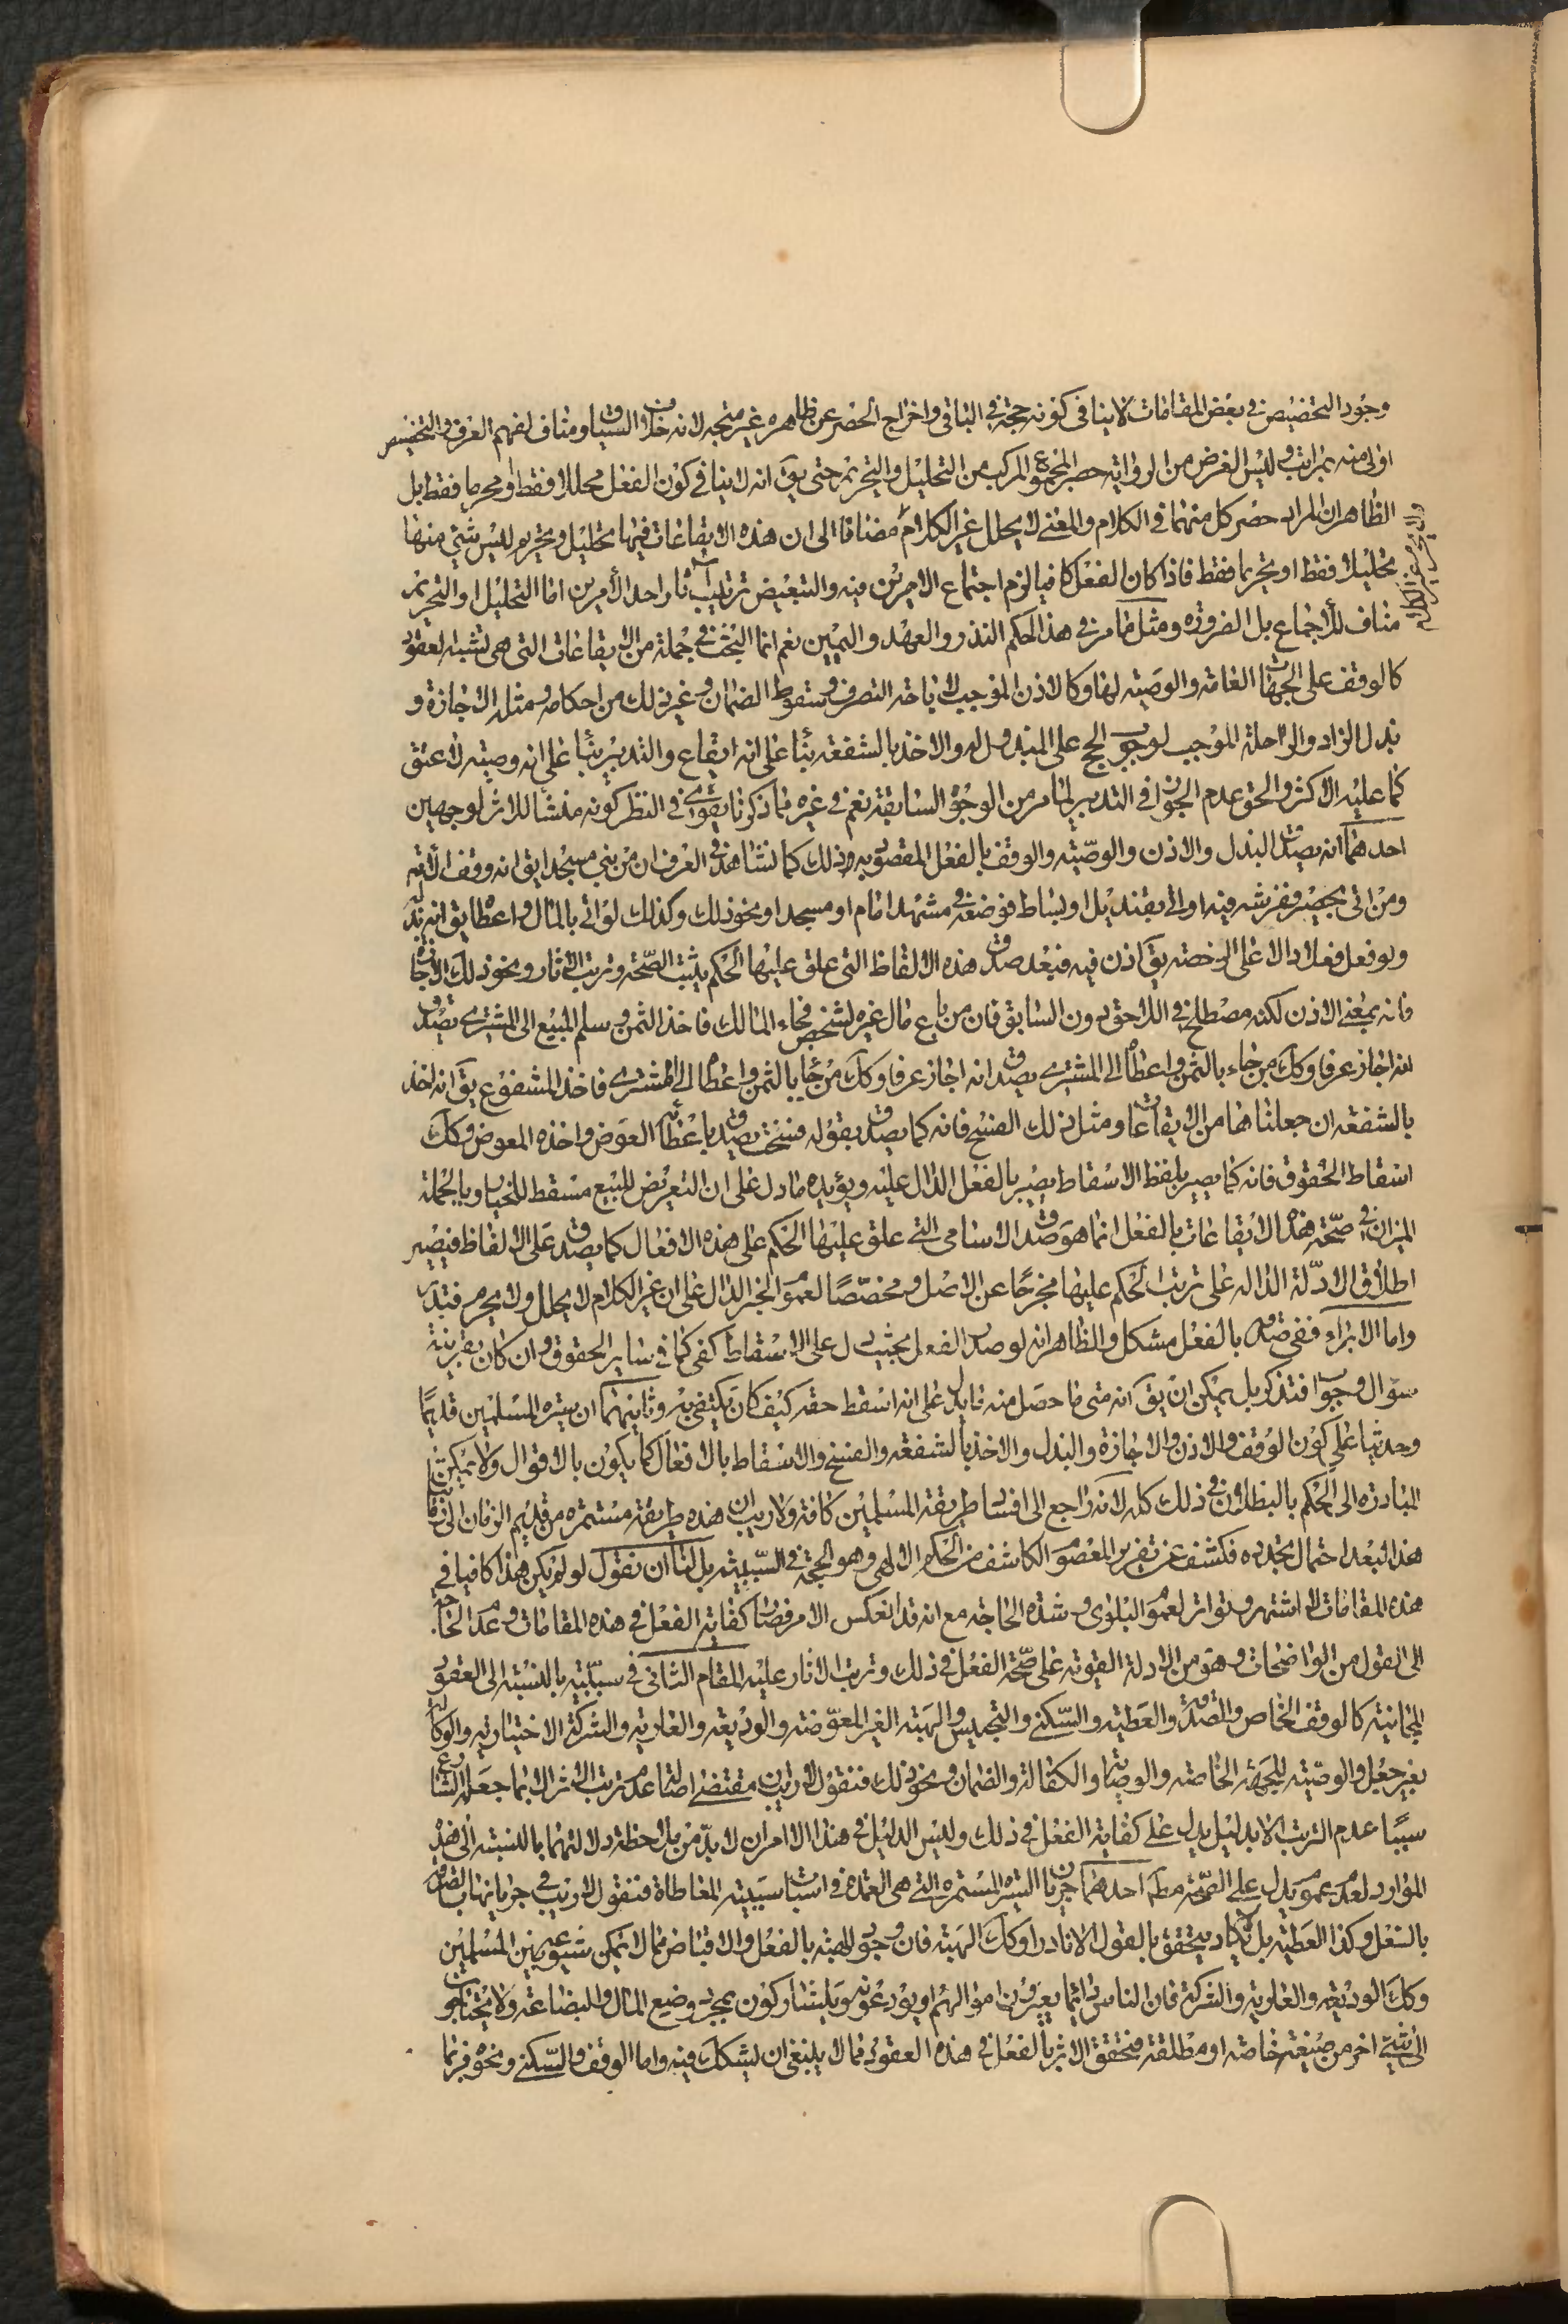 وجود التخصيص في بعض المقامات لا ينافي كونه حجة في الباقي واخراج الحصر عن ظاهره غير متجه لانه خلاف السياق ومناف لفهم العرف والتخصيص
اولى منه بمراتب وليس الغرض من الرواية حصر المجموع المركب من التحليل والتحريم حتى يق انه لا ينافي كون الفعل محللا فقط او محرما فقط بل
الظاهر ان المراد حصر كل منهما في الكلام والمعنى لا يحلل غير الكلام مضافا الى ان هذه الايقاعات فيها تحليل وتحريم ليس شئ منها
ولا يحرم غير الكلام
تحليلا فقط او تحريما فقط فاذا كان الفعل كافيا لزم اجتماع الامرين فيه والتبعيض ترتيب اثار احد الأمرين اما التحليل او التحريم
مناف للأجماع بل الضرورة ومثل ما مر في هذا الحكم النذر والعهد واليمين نعم انما البحث في جملة من الايقاعات التى هى تشبه لعقود
كالوقف على الجهات العامة والوصية لها وكالاذن الموجب لاباحة التصرف وسقوط الضمان وغير ذلك من احكامه ومثله الاجازة و
بذل الزاد والراحلة الموجب لوجوب الحج على المبذول له والاخذ بالشفعة بناء على انه ايقاع والتدبير بناء على انه وصية لا عتق
كما عليه الاكثر والحق عدم الجواز في التدبير لما مر من الوجوه السابقة نعم في غيره مما ذكرنا يقوى في النظر كونه منشأ للاثر لوجهين
احدهما انه يصدق البذل والاذن والوصية والوقف بالفعل المقصود به ذلك كما نشاهد في العرف ان من بنى مسجدا يق انه وقف الارض
ومن اتى بحصير ففرشه فيه او اتى بقنديل او بساط فوضعه في مشهد امام او مسجد او نحو ذلك وكذلك لو اتى بالمال واعطا يق انه بذل
ولو فعل فعلا دالا على الرخصة يق اذن فيه فبعد صدق هذه الالفاظ التى علق عليها الحكم يثبت الصحة وترتب الاثار ونحو ذلك الاجازة
فانه بمعنى الاذن لكنه مصطلح في اللاحق دون السابق فان من باع مال غيره لشخص فجاء المالك فاخذ الثمن وسلم المبيع الى المشترى يصدق
انه اجاز عرفا وكك من جاء بالثمن واعطاه الى المشترى يصدق انه اجاز عرفا وكك من جاء بالثمن واعطاه الى المشترى فاخذ المشفوع يق انه اخذ
بالشفعة ان جعلناها من الايقاعات ومثل ذلك الفسخ فانه كما يصدق بقوله فسخت يصدق باعطائه العوض واخذه المعوض وكك
اسقاط الحقوق فانه كما يصير بلفظ الاسقاط يصير بالفعل الدال عليه ويؤيده ما دل على ان التعريض للبيع مسقط للخيار وبالجملة
الميزان في صحة هذه الايقاعات بالفعل انما هو صدق الاسامى التى علق عليها الحكم على هذه الافعال كما يصدق على الالفاظ فيصير
اطلاق الادلة الدالة على ترتب الحكم عليها مخرجا عن الاصل ومخصصًا لعموم الخبر الدال على ان غير الكلام لا يحلل ولا يحرم فتدبر
واما الابراء ففي صدقه بالفعل مشكل والظاهر انه لو صدر الفعل بحيث يدل على الاسقاط كفى كما في سائر الحقوق وان كان بقرينة
سؤال وجواب فتذكر بل يمكن ان يق انه متى ما حصل منه ما يدل على انه اسقط حقه كيف كان يكتفى به وثانيهما ان سيرة المسلمين قديمًا
وحديثا على كون الوقف والاذن والاجازة والبذل والاخذ بالشفعة والفسخ والاسقاط بالافعال كما يكون بالاقوال ولا يمكن
المبادرة الى الحكم بالبطلان في ذلك كله لانه راجع الى افساد طريقة المسلمين كافة ولا ريب ان هذه طريقة مستمرة من قديم الزمان الى زماننا
هذا لبعد احتمال تجدده فكشف عن تقرير المعصوم الكاشف عن الحكم الالهى وهو الحجة في السببية بل لنا ان نقول لو لم يكن هذا كافيا في
هذه المقامات لاشتهر وتواتر لعموم البلوى وشدة الحاجة مع انه قد انعكس الامر فصار كفاية الفعل في هذه المقامات وعدم الحاجة
الى القول من الواضحات وهو من الادلة القوية على صحة الفعل في ذلك وترتب الاثار عليه المقام الثانى في سببيته بالنسبة الى العقود
المجانية كالوقف الخاص والصدقة والعطية والسكنى والتحبيس والهبة الغير المعوضة والوديعة والعارية والشركة الاختيارية والوكالة
بغير جعل والوصية للجهة الخاصة والوصاية والكفالة والضمان ونحو ذلك فنقول لا ريب ان مقتضى اصالة عدم ترتب الاثر الا بما جعله الشارع
سببًا عدم الترتب الا بدليل يدل على كفاية الفعل في ذلك وليس الدليل في هذا الا امران لا بد من ملاحظة دلالتهما بالنسبة الى هذه
الموارد لعدم عموم يدل على الصحة مطلقا احدهما جريان السيرة المستمرة التى هى العمدة في اثبات سببية المعاطاة فنقول لا ريب في جريانها في الصدقة
بالفعل وكذا العطية بل لا يكاد يتحقق بالقول الا نادرا وكك الهبة فان وجود الهبة بالفعل والاقباض مما لا يمكن شيوعه بين المسلمين
وكك الوديعة والعارية والشركة فان الناس دائما يعيرون اموالهم او يودعونه ويتشاركون بمجرد وضع المال والبضاعة ولا يحتاجون
الى شئ اخر من صيغة خاصة او مطلقة فتحقق الاثر بالفعل في هذه العقود مما لا ينبغى ان يشكك فيه واما الوقف والسكنى ونحوه فربما